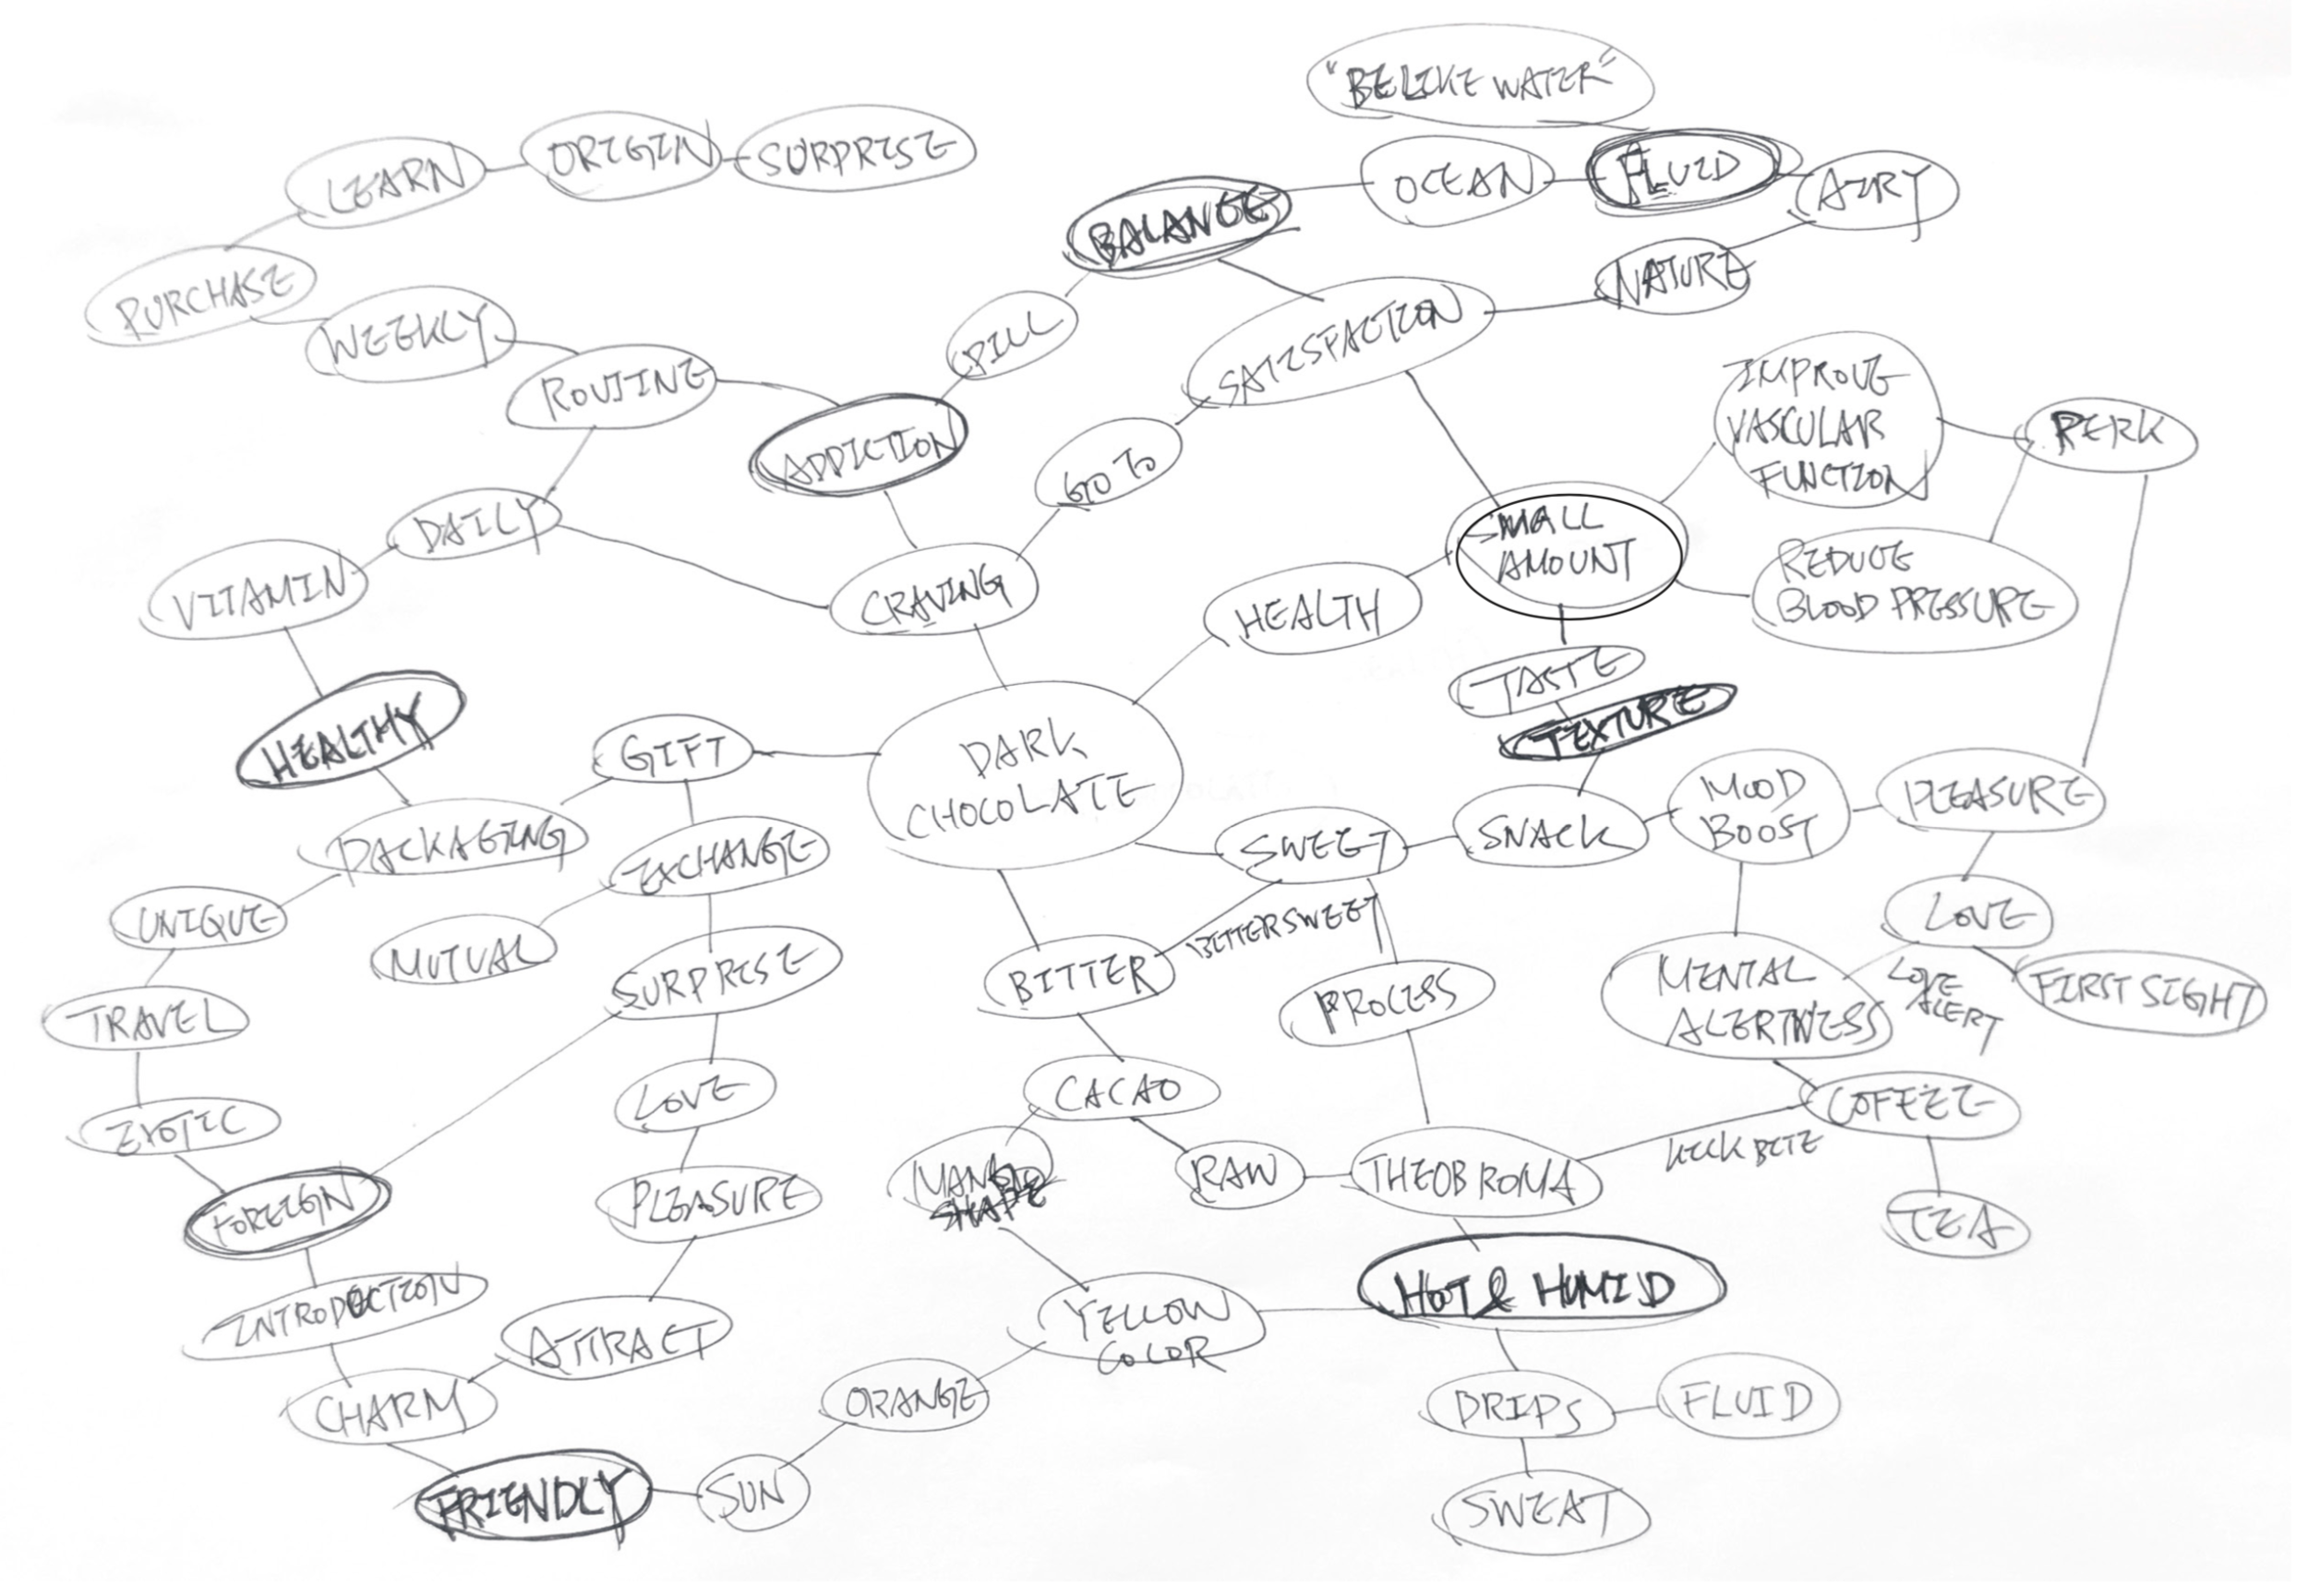 "BE LIKE WATER"
LEARN
ORIGIN
SURPRISE
OCEAN
FLUID
AIRY
BALANCE
PURCHASE
WEEKLY
PILL
NATURE
SATISFACTION
ROUTINE
ADDICTION
GO TO
IMPROVE
VASCULAR
FUNCTION
PERK
DAILY
SMALL
AMOUNT
REDUCE
BLOOD PRESSURE
VITAMIN
CRAVING
HEALTH
TASTE
TEXTURE
HEALTHY
GIFT
DARK
CHOCOLATE
MOOD
BOOST
PLEASURE
PACKAGING
EXCHANGE
SWEET
SNACK
UNIQUE
MUTUAL
BITTERSWEET
LOVE
SURPRISE
BITTER
PROCESS
MENTAL
ALERTNESS
LOVE
ALERT
FIRST SIGHT
TRAVEL
LOVE
CACAO
COFFEE
EXOTIC
KICK BITE
MANGO
SHAPE
RAW
THEOBROMA
FOREIGN
PLEASURE
TEA
INTRODUCTION
HOT & HUMID
YELLOW
COLOR
ATTRACT
CHARM
ORANGE
DRIPS
FLUID
FRIENDLY
SUN
SWEAT